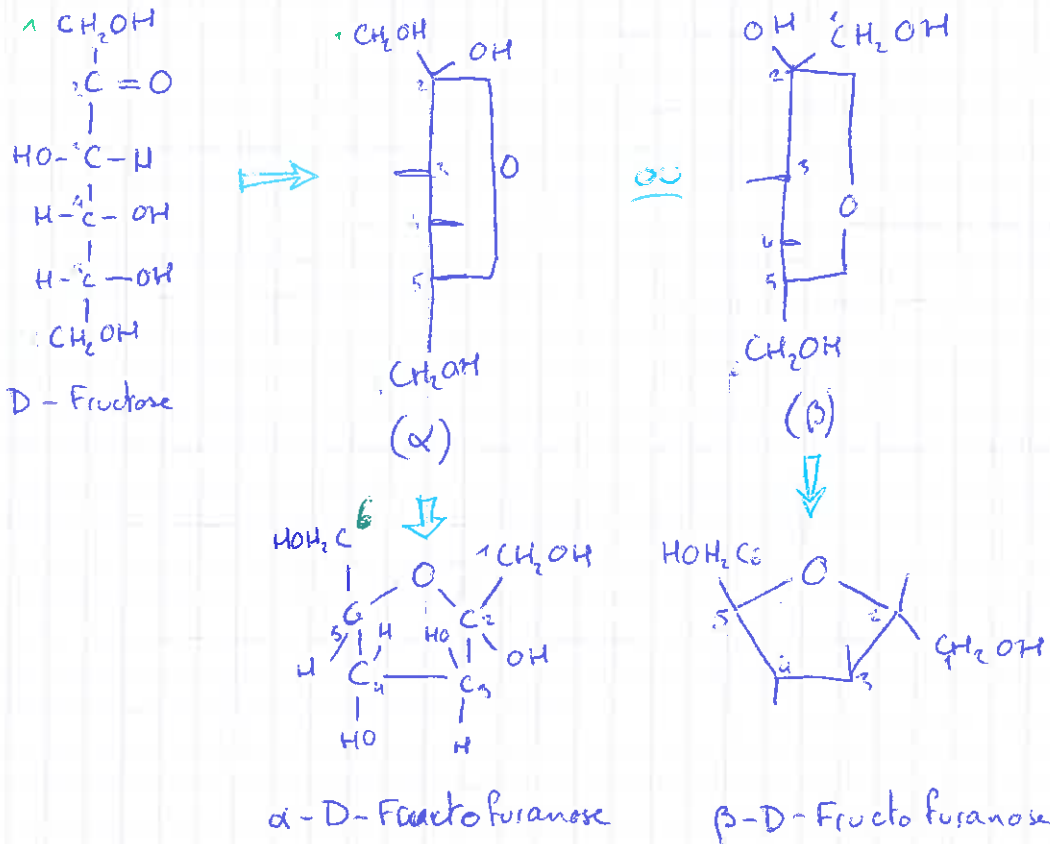 1 CH2OH
2C = O
HO-3C-H
H-4C-OH
H-5C-OH
CH2OH
D-Fructose
CH2OH
OH
2
3
4
5
O
CH2OH
(α)
ou
OH
1CH2OH
2
3
4
5
O
CH2OH
(β)
HOH2C 6
O
1CH2OH
C 5
C2
H
H
HO
OH
C4
C3
HO
H
α-D-Fructofuranose
HOH2C6
O
5
2
4
3
CH2OH
1
β-D-Fructofuranose